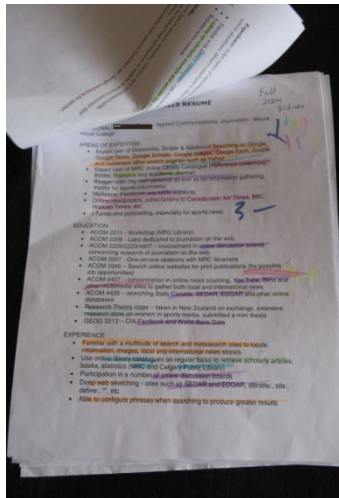 Fall
LLS RESUMÉ
Applied Communications, Journalism – Mount
Royal College
AREAS OF EXPERTISE
• Expert user of Directories, Simple & Advanced Searching on Google,
Google News, Google Scholar, Google Images, Google Earth, Google
and numerous other search engines such as Yahoo!
• Expert user of MRC online Library Catalogue (reference collections,
Books, Statistics and Academic Journal)
• Blogger.com (my own personal as well as for information gathering,
mostly for sports columnists)
• MySpace, Facebook and MSN accounts
• Online newspapers, subscriptions to Canada.com, NY Times, BBC,
Waikato Times, etc.
• I-Tunes and podcasting, especially for sports news
3 –
EDUCATION
• ACOM 2211 - Workshop (MRC Library)
• ACOM 2209 - Labs dedicated to journalism on the web
• ACOM 2209/3223/4407 – Involvement in online discussion boards
concerning research of journalism on the web
• ACOM 3307 - One-on-one sessions with MRC librarians
• ACOM 3345 - Search online websites for print publications (for possible
job opportunities)
• ACOM 4407 – concentration in online news sourcing, You Tube, Blinx and
other multimedia sites to gather both local and international news
• ACOM 4425 – searching Stats Canada, SEDAR, EDGAR and other online
databases
• Research Theory class – taken in New Zealand on exchange, extensive
research done on women in sports media, submitted a mini thesis
• GEOG 2213 – CIA Factbook and World Bank.Com
EXPERIENCE
• Familiar with a multitude of search and metasearch sites to locate
information, images, local and international news stories
• Use online library catalogues on regular basis to retrieve scholarly articles,
books, statistics (MRC and Calgary Public Library)
• Participation in a number of online discussion boards
• Deep web searching - sites such as SEDAR and EDGAR, allintitle:, site:,
define:, "", etc.
• Able to configure phrases when searching to produce greater results